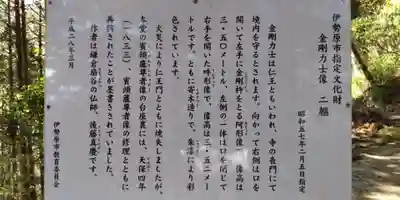 伊勢原市指定文化財
金剛力士像　二軀
昭和五七年二月五日指定
金剛力士は仁王ともいわれ、寺の表門にて
境内を守るとされます。向かって右側は口を
開いて左手に金剛杵をとる阿形像で、像高は
三・五〇メートル、左側の一体は口を閉じて
右手を開いた吽形像で、像高は三・五二メー
トルです。ともに寄木造りで、朱漆により彩
色されています。
火災により仁王門とともに焼失しましたが、
本堂の賓頭盧尊者像の台座裏には、天保四年
（一八三三）、賓頭盧尊者像の修理とともに
再興されたことが墨書されていました。
作者は鎌倉扇谷の仏師、後藤真慶です。
平成二八年三月
伊勢原市教育委員会